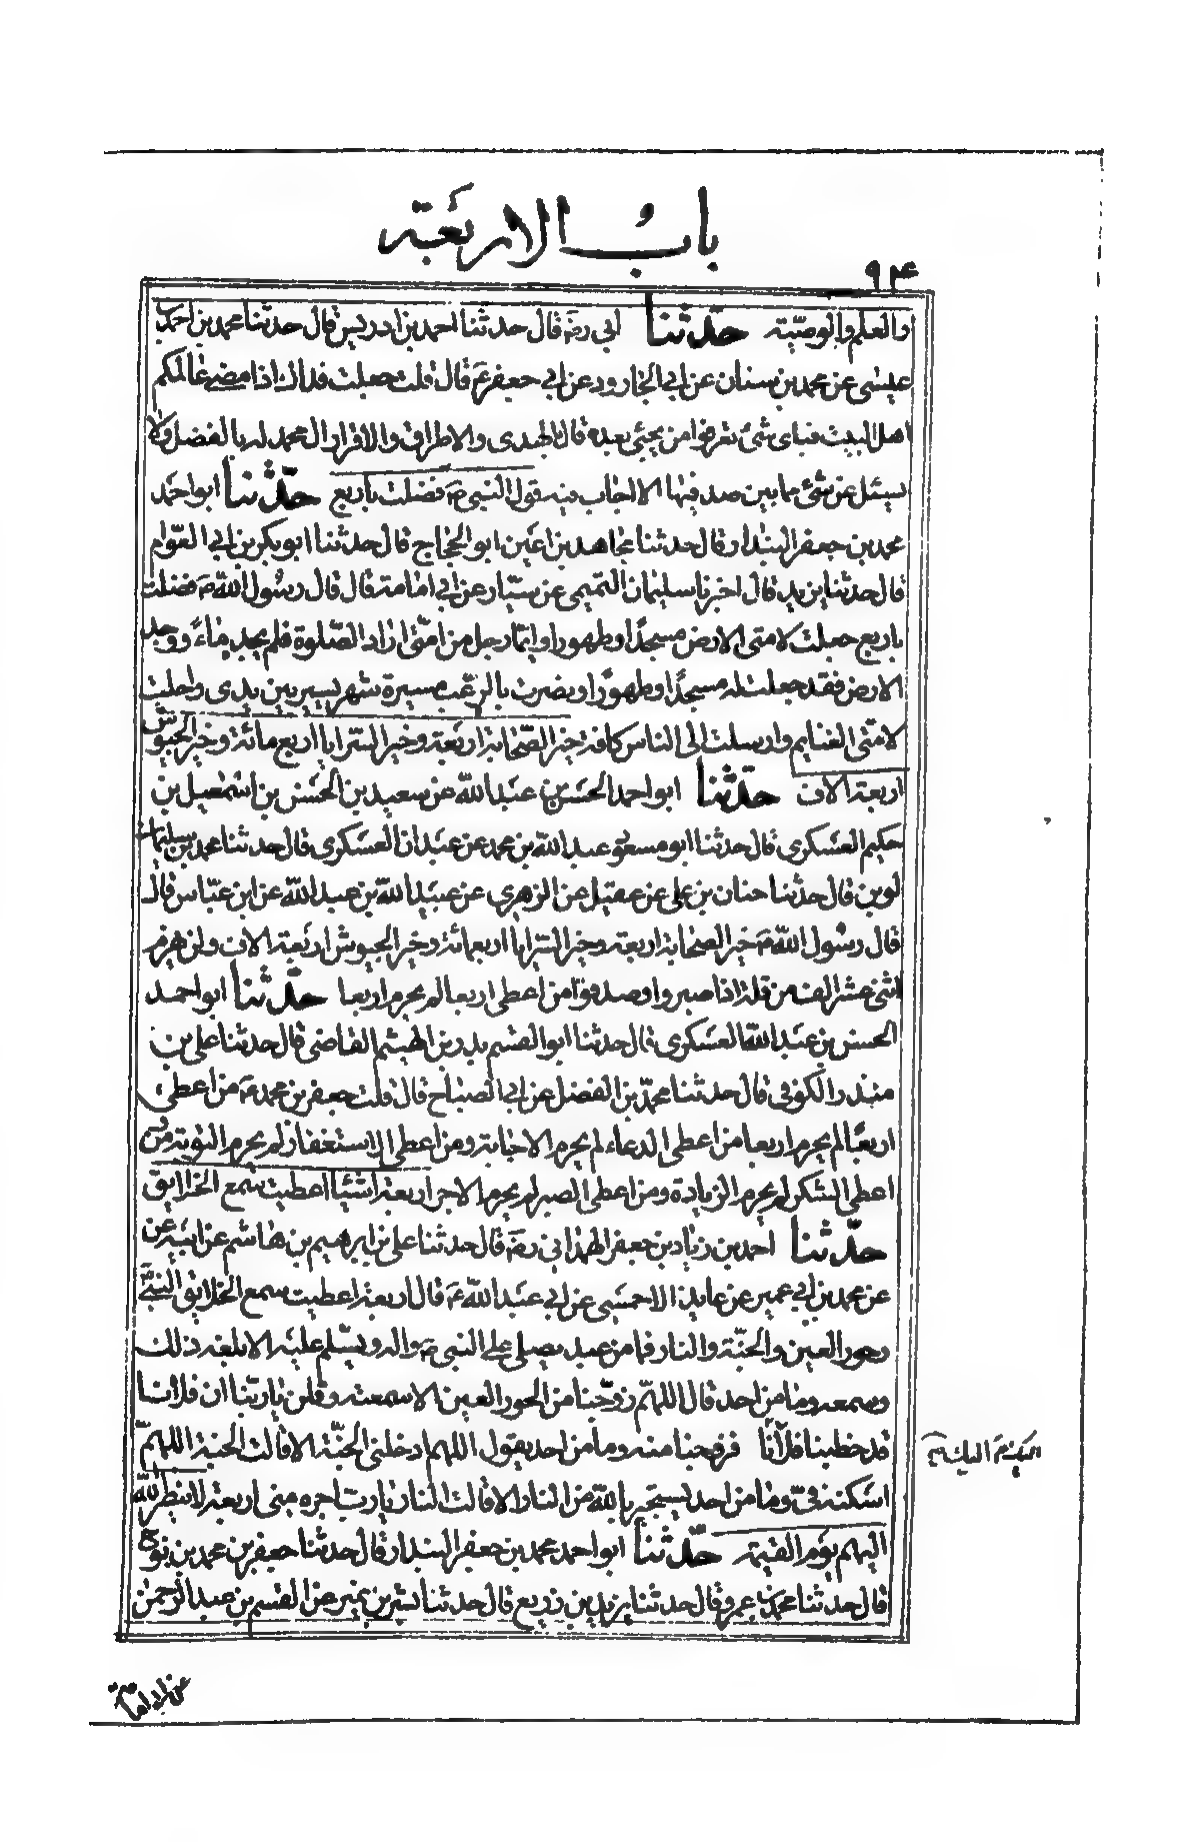 باب الاربعة
۹۴
والعلم والوصيّة حدّثنا ابى رضه قال حدثنا احمد بن ادريس قال حدثنا محمد بن احمد بن
عيسى عن محمد بن سنان عن ابى الجارود عن ابى جعفر ع قال قلت جعلت فداك اذا مضى عالمكم
اهل البيت فباى شئ تعرفوا من يجئ بعده قال بالهدى والاطراق والاقرار ال محمد له بالفضل ولا
يسئل عن شئ مما بين صدفيها الا اجاب فيه قول النبى ص فضلت باربع حدّثنا ابو احمد
محمد بن جعفر البندار قال حدثنا مجاهد بن اعين ابو الحجاج قال حدثنا ابو بكر بن ابى العوّام
قال حدثنا يزيد قال اخبرنا سليمان التميمى عن سيّار عن ابى امامة قال قال رسول اللّه ص فضلت
باربع جعلت لامتى الارض مسجدًا وطهورا وايّما رجل من امّتى اراد الصّلوة فلم يجد ماءً ووجد
الارض فقد جعلت له مسجدًا وطهورًا ونصرت بالرّعب مسيرة شهر يسير بين يدى واحلت
لامّتى الغنايم وارسلت الى الناس كافة خير الصّحابة اربعة وخير السّرايا اربع مائة وخير الجيوش
اربعة الاف حدّثنا ابو احمد الحسن بن عبد اللّه عن سعيد بن الحسن بن اسمعيل بن
حكيم العسكرى قال حدثنا ابو مسعود عبد اللّه بن محمد عن عبدان العسكرى قال حدثنا محمد بن سليمان
لوين قال حدثنا حنان بن على عن عقيل عن الزهرى عن عبيد اللّه بن عبد اللّه عن ابن عبّاس قال
قال رسول اللّه ص خير الصحابة اربعة وخير السّرايا اربعمائة وخير الجيوش اربعة الاف ولن هزم
اثنى عشر الف من قلة اذا صبروا وصدقوا من اعطى اربعا لم يحرم اربعا حدّثنا ابو احمد
الحسن بن عبد اللّه العسكرى قال حدثنا ابو القسم بدر بن الهيثم القاضى قال حدثنا على بن
منذر الكوفى قال حدثنا محمّد بن الفضل عن ابى الصباح قال قلت جعفر بن محمد ع من اعطى
اربعًا لم يحرم اربعا من اعطى الدعاء لم يحرم الاجابة ومن اعطى الاستغفار لم يحرم التوبة ومن
اعطى الشكر لم يحرم الزيادة ومن اعطى الصبر لم يحرم الاجر اربعة اشيئا اعطيت سمع الخلايق
حدّثنا احمد بن زياد بن جعفر الهمدانى رضه قال حدثنا على بن ابرهيم بن هاشم عن ابيه عن
عن محمد بن ابى عمير عن عايذ الاحمسى عن ابى عبد اللّه ع قال اربعة اعطيت سمع الخلايق النبىّ
وحور العين والجنّة والنار فما من عبد يصلى على النبى ص واله ويسّلم عليه الا بلغه ذلك
وسمعه وما من احد قال اللهمّ زوّجنا من الحور العين الا سمعته وقلن يا ربّنا ان فلانا
قد خطبنا فلانًا فزوجنا منه وما من احد يقول اللهم ادخلنى الجنّة الا قالت الجنة اللهمّ
اسكنه فىّ وما من احد يستجير باللّه من النار الا قالت النار يا رب اجره منى اربعة لا ينظر اللّه
اليهم يوم القيمة حدّثنا ابو احمد محمد بن جعفر البندار قال حدثنا جعفر بن محمد بن نوح
قال حدثنا محمد بن عمرو قال حدثنا يزيد بن زريع قال حدثنا بشر بن نمير عن القسم بن عبد الرحمن
عن ابى امامة